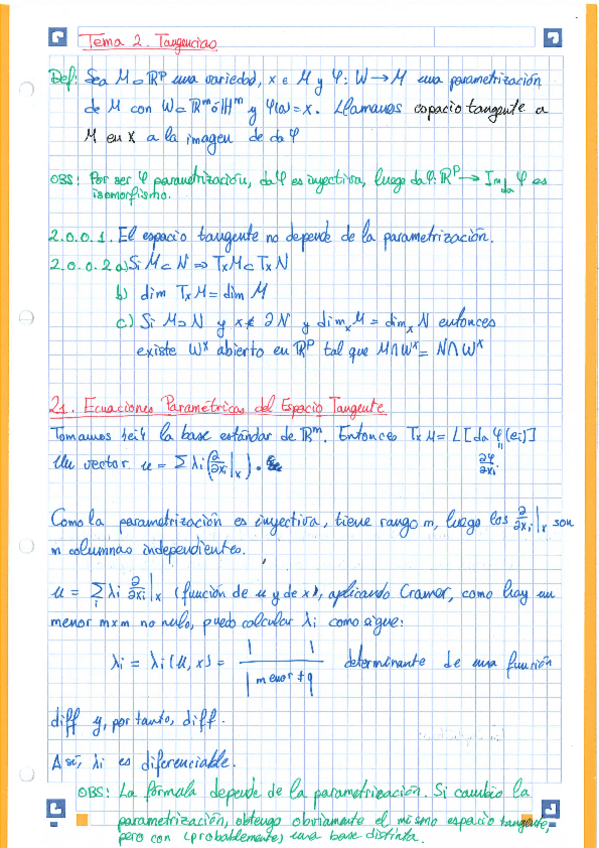 Tema 2. Tangencias
Def: Sea M ⊂ ℝᴾ una variedad, x ∈ M y φ: W → M una parametrización
de M con W ⊂ ℝᵐ ó ℍᵐ y φ(a) = x. Llamamos espacio tangente a
M en x a la imagen de da φ
OBS: Por ser φ parametrización, da φ es inyectiva, luego da φ: ℝᴾ → Im da φ es
isomorfismo.
2.0.0.1. El espacio tangente no depende de la parametrización.
2.0.0.2 a) Si M ⊂ N ⇒ TxM ⊂ TxN
b) dim TxM = dim M
c) Si M ⊃ N y x ∉ ∂N y dimₓ M = dimₓ N entonces
existe Wˣ abierto en ℝᴾ tal que M ∩ Wˣ = N ∩ Wˣ
21. Ecuaciones Paramétricas del Espacio Tangente
Tomamos {ei} la base estándar de ℝᵐ. Entonces TxM = L[da φ(ei)]
Un vector u = Σ λi (∂/∂xi|x).
∂φ/∂xi
Como la parametrización es inyectiva, tiene rango m, luego los ∂/∂xi|x son
m columnas independientes.
u = Σi λi ∂/∂xi|x (función de u y de x), aplicando Cramer, como hay un
menor m×m no nulo, puedo calcular λi como sigue:
λi = λi(u, x) = | | / |menor ≠ 0| determinante de una función
diff y, por tanto, diff.
Así, λi es diferenciable.
OBS: La fórmula depende de la parametrización. Si cambio la
parametrización, obtengo obviamente el mismo espacio tangente,
pero con (probablemente) una base distinta.